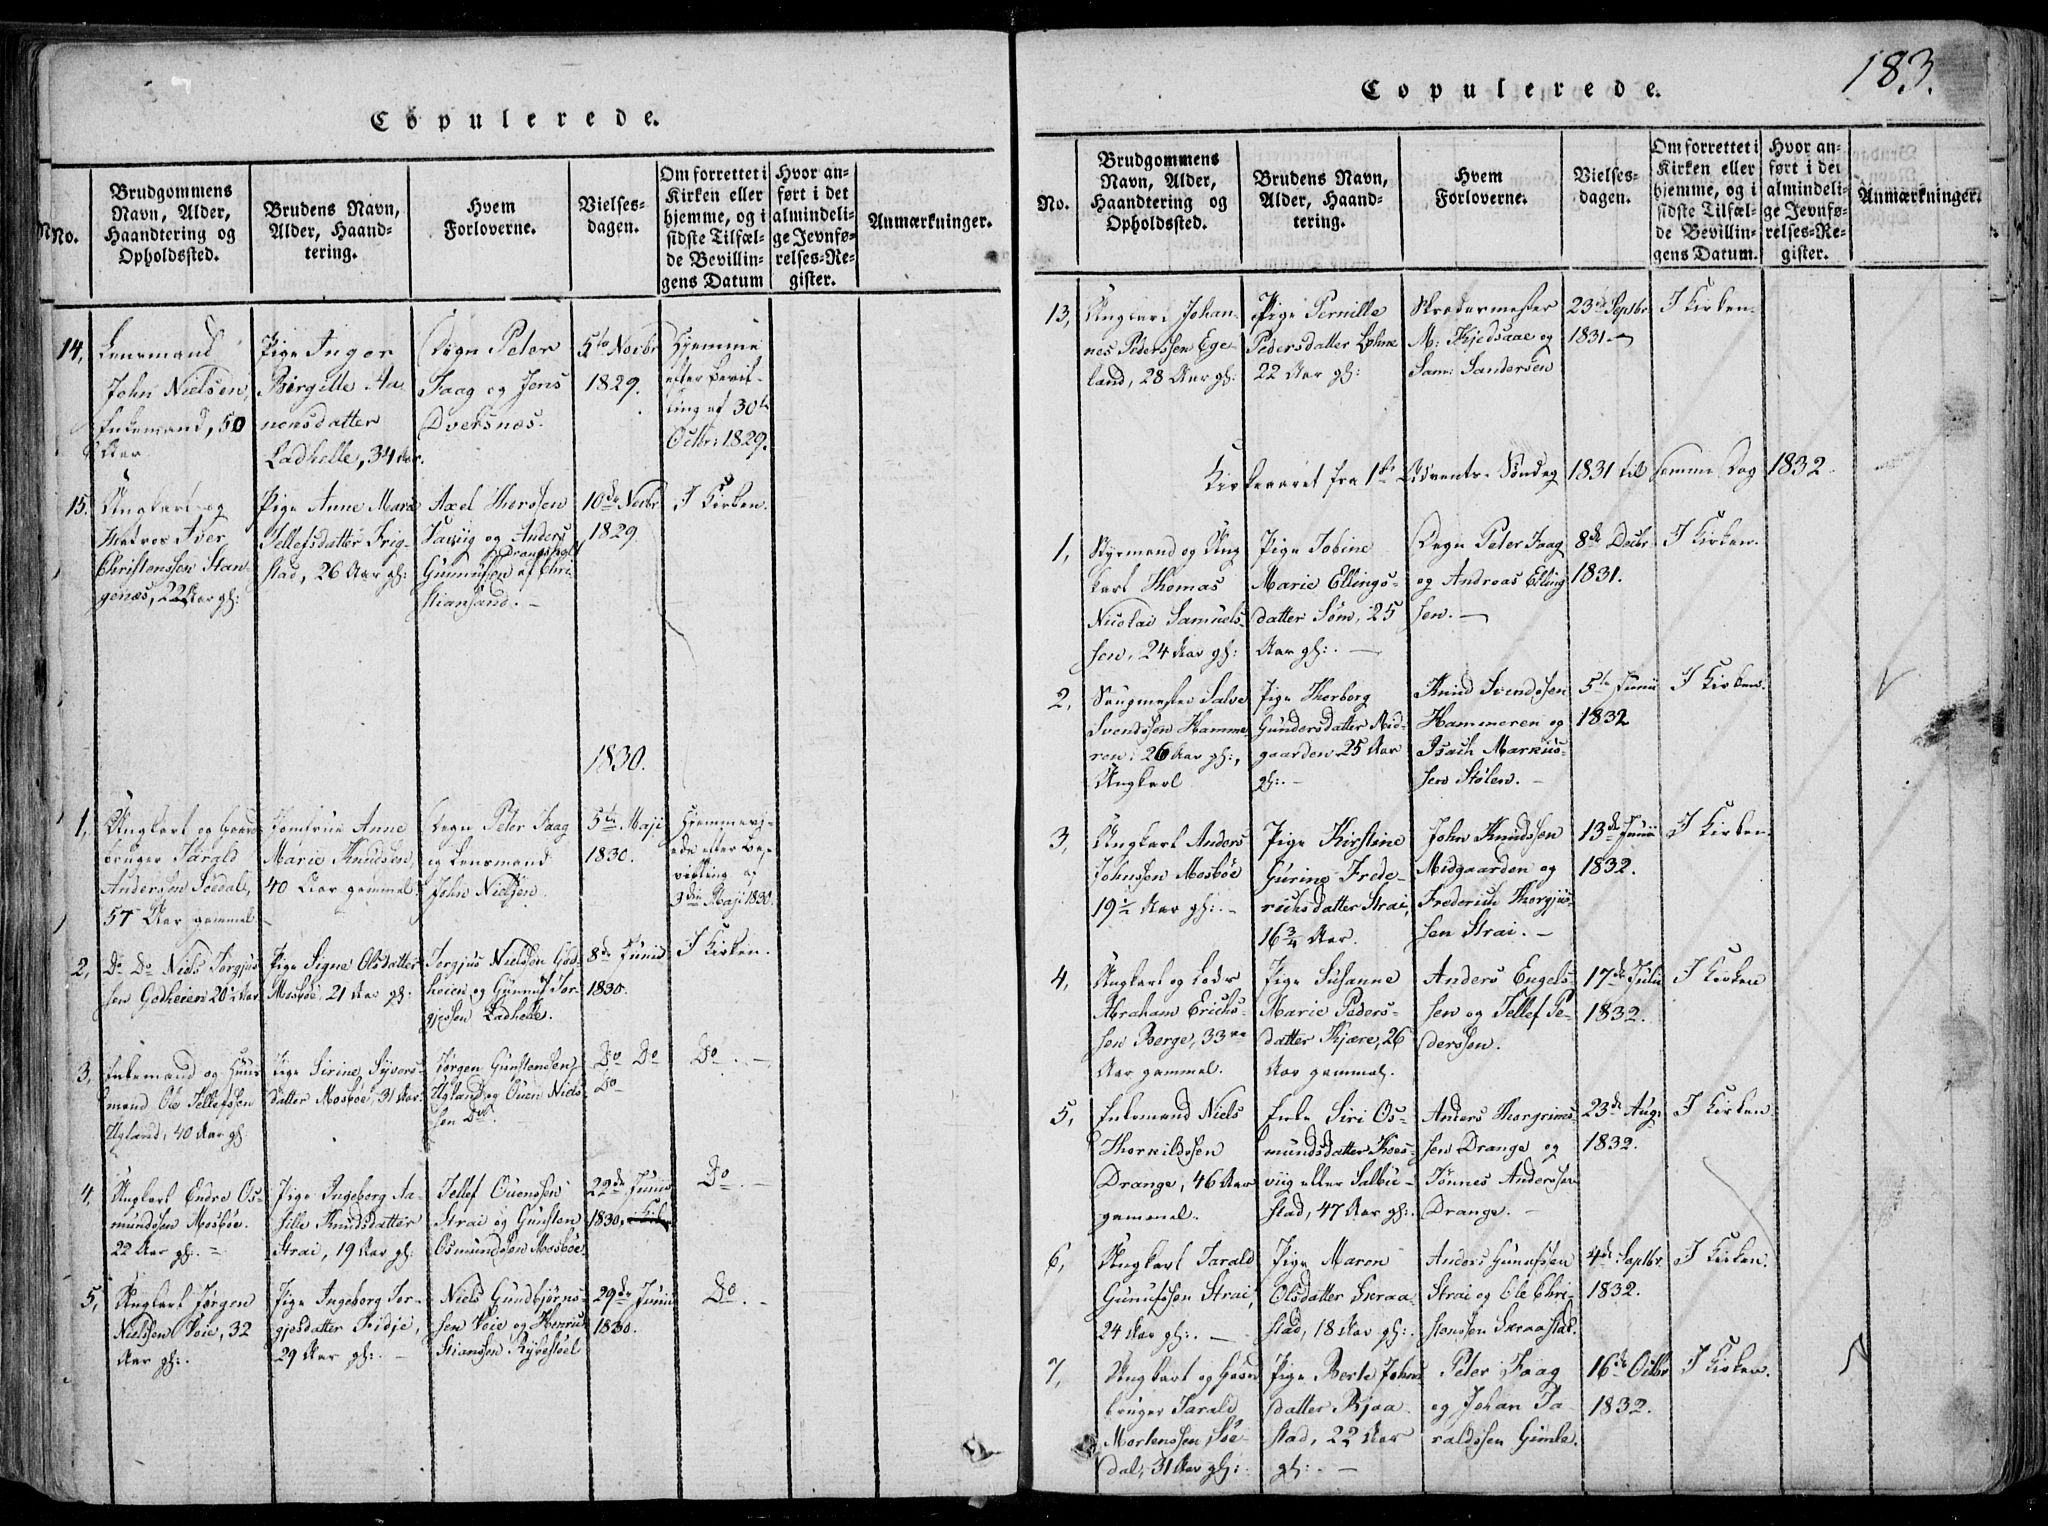 Copulerede.
No.
Brudgommens
Navn, Alder,
Haandtering og
Opholdssted.
Brudens Navn,
Alder, Haand-
tering.
Hvem
Forloverne.
Vielses-
dagen.
Om forrettet i
Kirken eller
hjemme, og i
sidste Tilfæl-
de Bevillin-
gens Datum
Hvor an-
ført i det
almindeli-
ge Jevnfø-
relses-Re-
gister.
Anmærkninger.
14,
Lensmand
John Nielsen,
Enkemand, 50
Aar
Pige Inger
Birgitte Aa-
nensdatter
Ladhelle, 34 Aar.
Degn Peter
Faag og Jens
Dvergsnes.
5te Novbr
1829.
Hjemme
efter Bevil-
ling af 30te
Octbr: 1829.
15.
Ungkarl og
Matros Iver
Christenssen Stan-
genæs, 22 Aar gl:
Pige Anne Maria
Tellefsdatter Frig-
stad, 26 Aar gl:
Axel Thorsen
og Anders
Gunnufsen af Chri-
stiansand. –
10de Novbr
1829
I Kirken.
1830.
1,
Ungkarl og Gaard-
bruger Tarald
Andersen Søedal,
57 Aar gammel
Jomfrue Anne
Marie Knudsen,
40 Aar gammel
Degn Peter Faag
og Lensmand
John Nielsen
5te Maji
1830.
3die Maji 1830.
2,
Do Do Niels Torgjus-
sen Godheien 20½ Aar
Pige Signe Olsdatter
Mosbøe, 21 Aar gl:
Torgjus Nielsen God-
heien og Gunnuf Tor-
gjussen Ladhelle.
8de Junii
1830.
I Kirken.
3,
Enkemand og Huus-
mand Ole Tellefssen
Uglænd, 40 Aar gl
Pige Sirine Syvers-
datter Mosbøe, 31 Aar.
Jørgen Gunstensen
Ugland og Ouen Niels-
sen Do
Do Do
Do
Do. –
4,
Ungkarl Endre Os-
mundssen Mosbøe.
22 Aar gl. –
Pige Ingeborg Aa-
sille Knudsdatter
Strai, 19 Aar gl.
Tellef Ouenssen
Strai og Gunsten
Osmundssen Mosbøe
22de Junii
1830.
Do. –
5,
Ungkarl Jørgen
Nielssen Voie, 32
Aar gl:.
Pige Ingeborg Tor-
gjesdatter Fidje,
29 Aar gl:. –
Niels Gundbjørns-
sen Voie og Henrik
Stianssen Røvestøel
29de Junii
1830.
Do. –
183.
Copulerede.
No.
Brudgommens
Navn, Alder,
Haandtering og
Opholdssted.
Brudens Navn,
Alder, Haand-
tering.
Hvem
Forloverne.
Vielses-
dagen.
Om forrettet i
Kirken eller
hjemme, og i
sidste Tilfæl-
de Bevillin-
gens Datum.
Hvor an-
ført i det
almindeli-
ge Jevnfø-
relses-Re-
gister.
Anmærkninger.
13,
Ungkarl Johan-
nes Pederssen Ege-
land, 28 Aar gl:
Pige Pernille
Pedersdatter Lohne
22 Aar gl:
Skredermester
M: Kjedsaae og
Sam: Sandersen
23de Septbr
1831.
I Kirken.
Kirkeaaret fra 1te Advents-Søndag 1831 til samme Dag 1832.
1,
Styrmand og Ung
karl Thomas
Nicolai Samuels-
sen, 24 Aar gl:
Pige Tobine
Marie Ellings-
datter Søm, 25
Aar gl:. –
Degn Peter Faag
og Andreas Elling
sen. –
8de Decbr
1831.
I Kirken.
2,
Salve
Svendssen Hamme
ren: 26 Aar gl:,
Ungkarl
Pige Thorborg
Gundersdatter Mid-
gaarden 25 Aar
gl:. –
Knud Svendssen
Hammeren og
Isach Markus-
sen Stølen. –
5te Junii
1832
I Kirken.
3,
Ungkarl Anders
Johnssen Mosbøe
19½ Aar gl:. –
Pige Kirstine
Gurine Frede-
richsdatter Strai,
16¾ Aar.
John Knudssen
Midgaarden og
Frederich Thorgjus-
sen Strai. –
13de Junii
1832.
I Kirken.
4,
Ungkarl og Lods
Abraham Erichs-
sen Berge, 33
Aar gammel.
Pige Susanne
Marie Peders-
datter Kjære, 26
Aar gammel.
Anders Engels-
sen og Tellef Pe-
derssen.
17de Julii
1832.
I Kirken
5,
Enkemand Niels
Thorkildssen
Drange, 46 Aar
gammel.
Enke Siri Os-
mundsdatter Koes-
viig eller Salbu-
stad, 47 Aar gl:.
Anders Thorgrims-
sen Drange og
Tønnes Anderssen
Drange. –
23de Aug:
1832.
I Kirken.
6,
Ungkarl Tarald
Gunufssen Strai,
24 Aar gl:. –
Pige Maren
Olsdatter Skraa-
stad, 18 Aar gl:.
Anders Gunufssen
Strai og Ole Chri-
stenssen Skraastad.
4de Septbr
1832.
I Kirken.
7,
Ungkarl og Gaard
bruger Tarald
Mortenssen Søe-
dal, 31 Aar gl:
Pige Berte Johns
datter Bjaa-
stad, 22 Aar
gl:. –
Peter Faag
og Johan Ta-
raldssen Gimle.
16de Octbr
1832.
I Kirken.